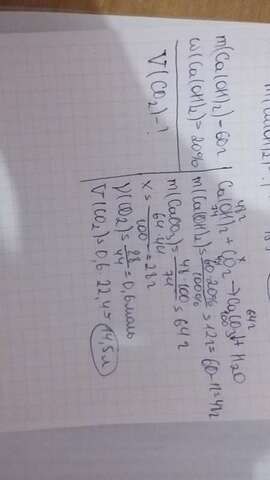 m(Ca(OH)₂) = 60г
ω(Ca(OH)₂) = 20%
V(CO₂) - ?
48г x 64г
Ca(OH)₂ + CO₂ → CaCO₃ + H₂O
74 100
m(Ca(OH)₂) = 60·20% / 100% = 12г = 60-12=48г
m(CaCO₃) = 48·100 / 74 = 64г
x = 64·44 / 100 = 28г
ν(CO₂) = 28 / 44 = 0,6моль
V(CO₂) = 0,6·22,4 = 14,5л